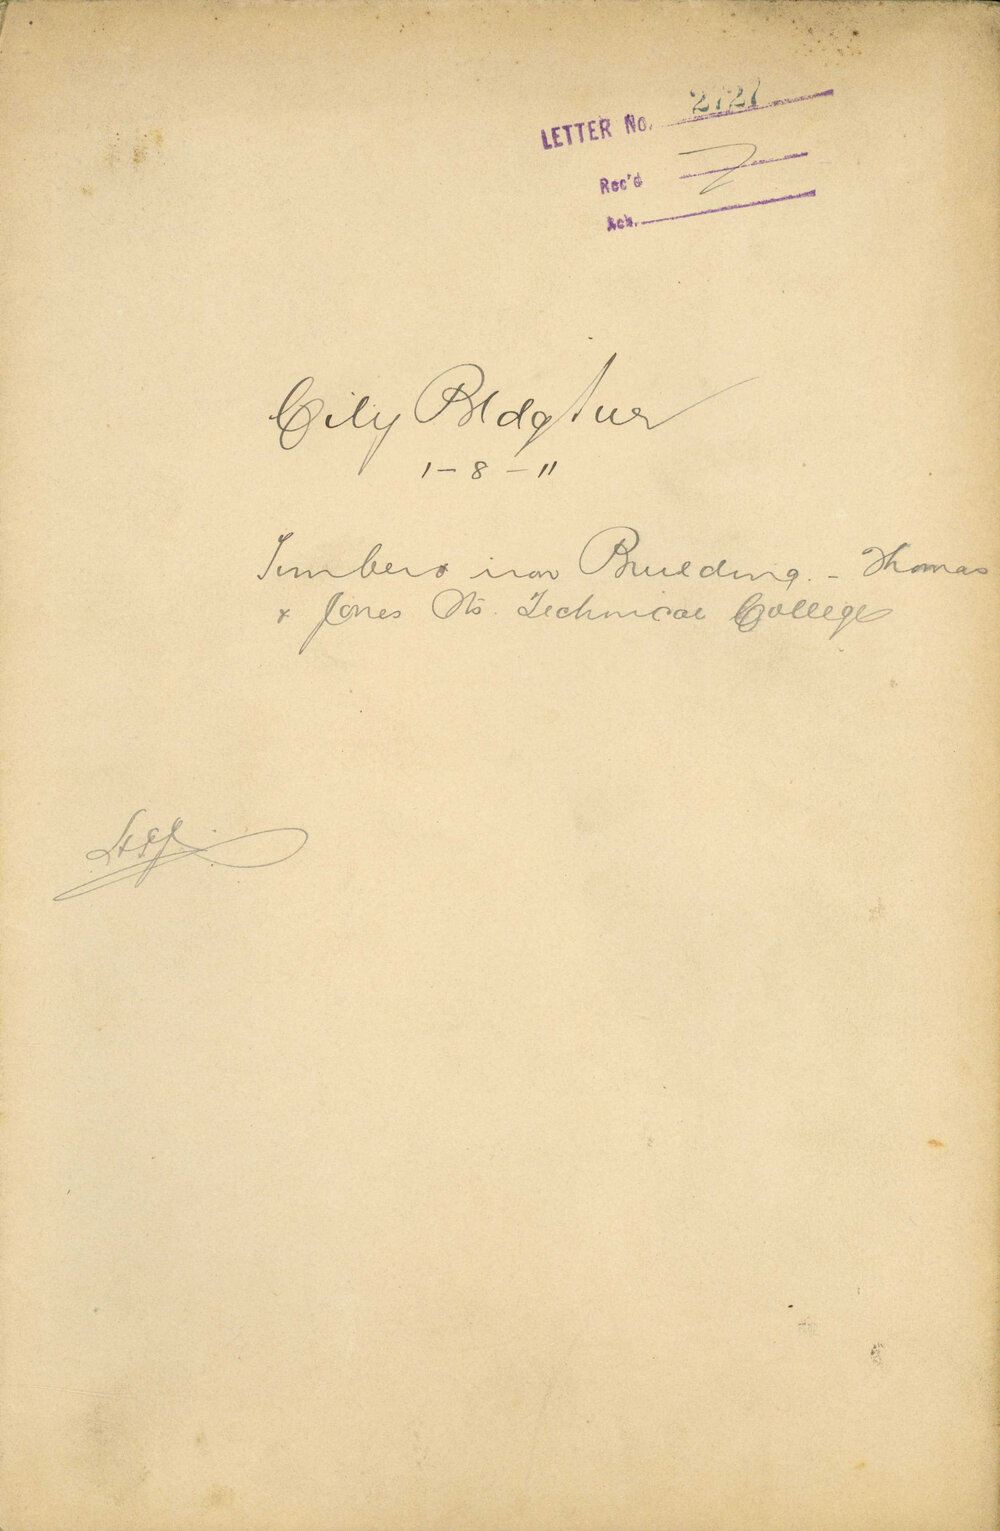 LETTER No. 2727
Rec'd
Ack.
City Bldg Sur
1-8-11
Timber & iron Building. - Thomas
& Jones Sts. Technical College